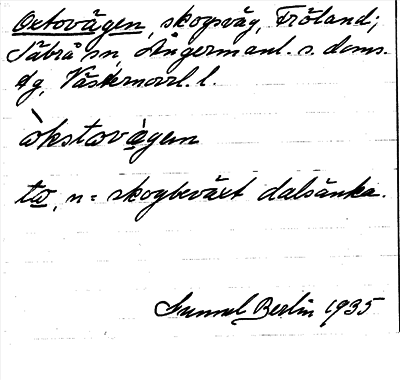 Oxtovägen, skogsväg, Fröland;
Säbrå sn, Ångermanl. s. doms.
dg, Västernorrl. l.
òkstovàgen
tω, n = skogbeväxt dalsänka.
Samuel Berlin 1935